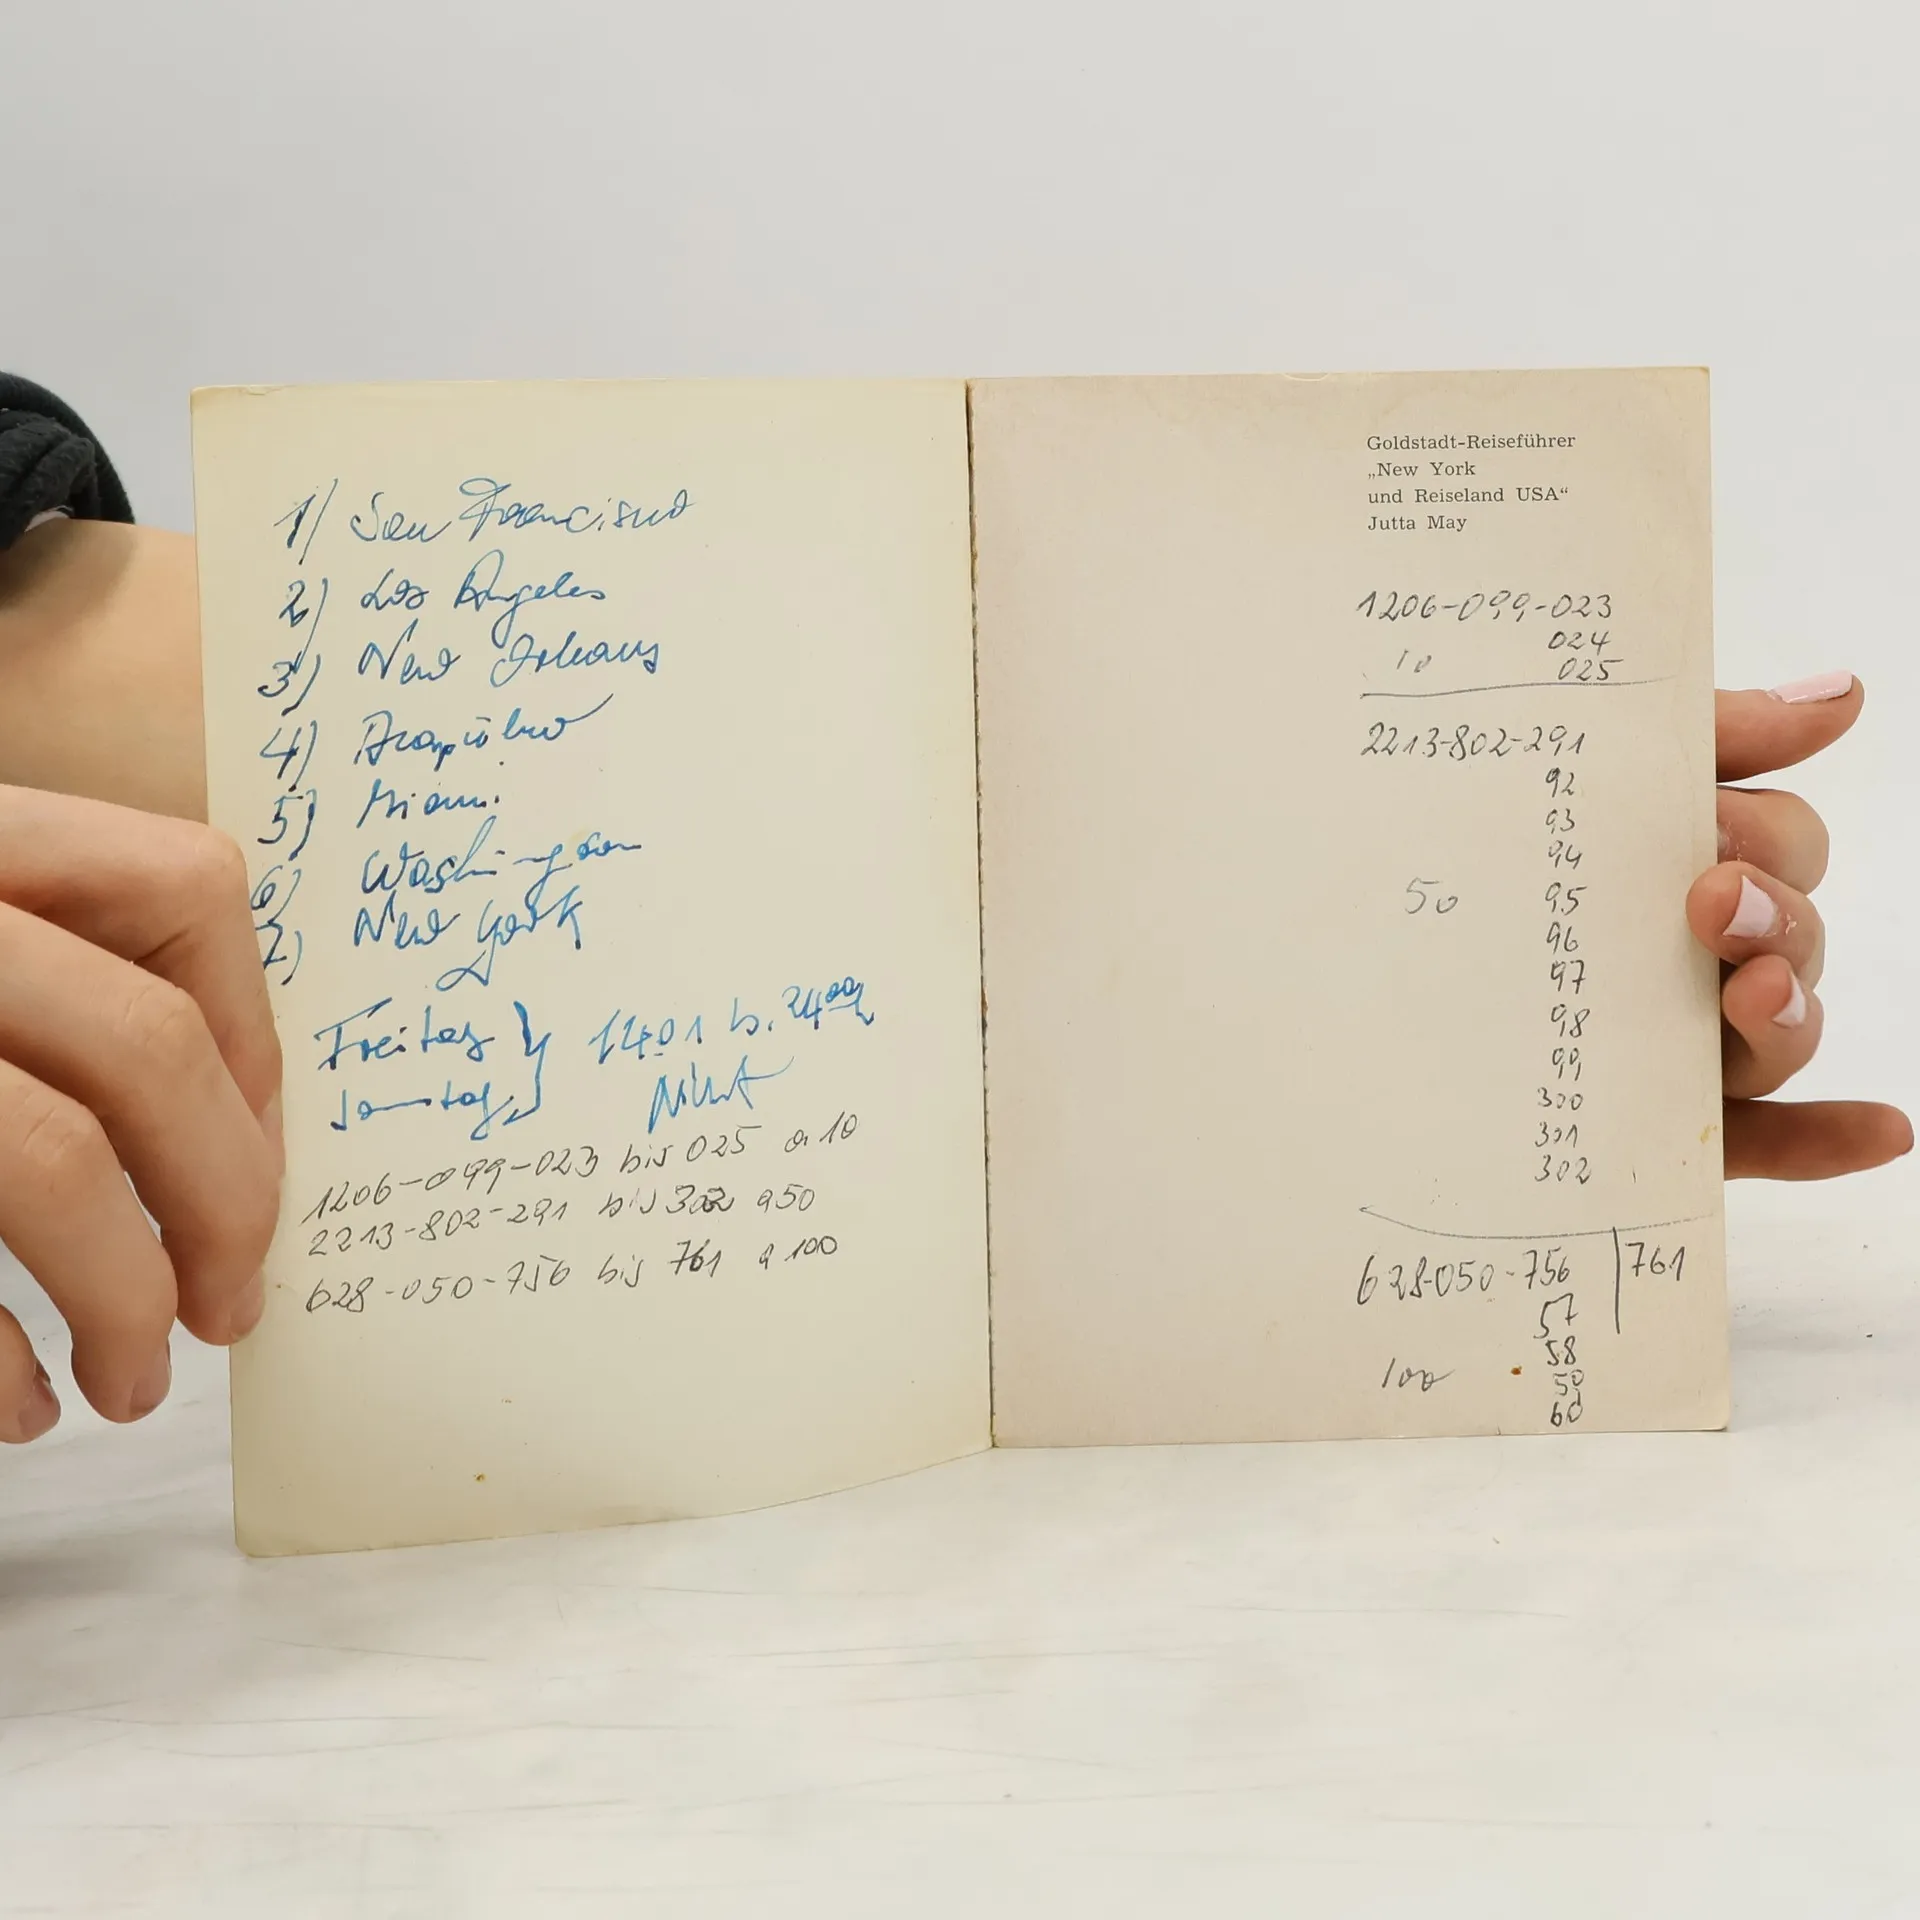 1) San Francisco
2) Los Angeles
3) New Orleans
4) Acapulco
5) Miami
6) Washington
7) New York
Freitag } 1401 b. 24⁰⁰
Samstag, Nicht
1206-099-023 bis 025 a 10
2213-802-291 bis 302 a 50
628-050-756 bis 761 a 100
Goldstadt-Reiseführer
„New York
und Reiseland USA“
Jutta May
1206-099-023
024
10 025
2213-802-291
92
93
94
50 95
96
97
98
99
300
301
302
628-050-756 | 761
57
58
100 59
60